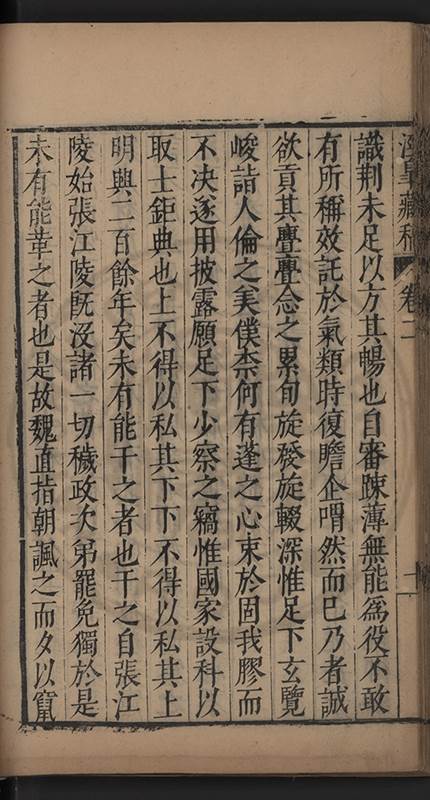 涇臯藏稿 卷二 十一
識荆未足以方其暢也自審踈薄無能爲役不敢
有所稱效託於氣類時復瞻企喟然而已乃者誠
欲貢其亹亹念之累旬旋發旋輟深惟足下玄覽
峻詣人倫之美僕柰何有蓬之心束於固我膠而
不决遂用披露願足下少察之竊惟國家設科以
取士鉅典也上不得以私其下下不得以私其上
明興二百餘年矣未有能干之者也干之自張江
陵始張江陵旣沒諸一切穢政次弟罷免獨於是
未有能革之者也是故魏直指朝諷之而夕以竄